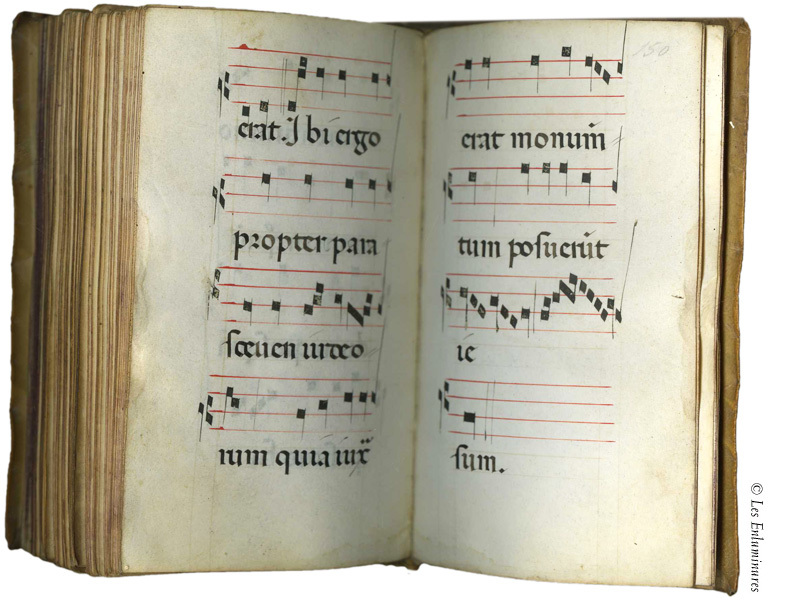 erat. Ibi ergo
propter para
sceuen iudeo
rum quia iuxͣ
150
erat monum̄
tum posuerūt
ie
sum.
© Les Enluminures